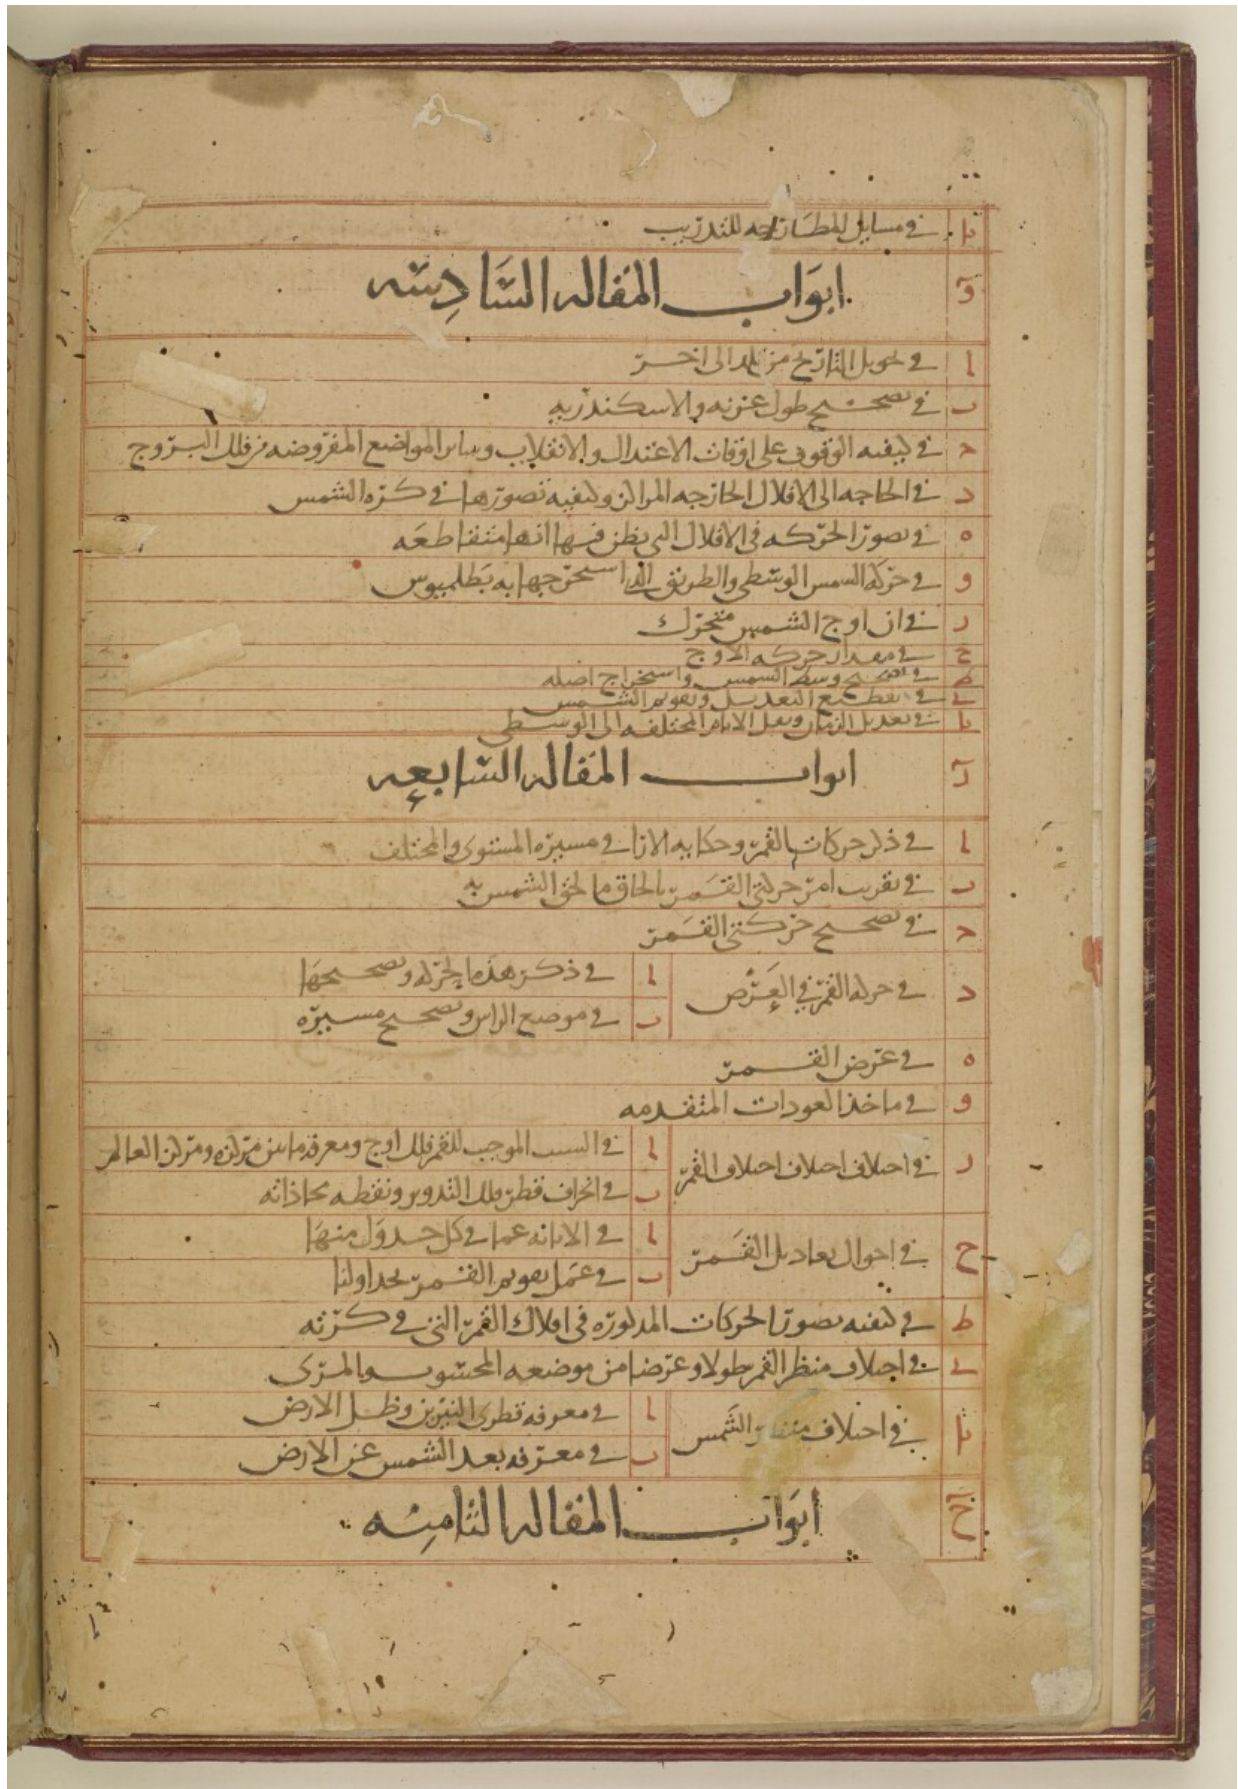 يا في مسايل للتدريب
و ابواب المقاله السادسه
ا في تحويل التاريخ من بلد الى اخر
ب في تصحيح طول غزنه والاسكندريه
ج في كيفيه الوقوف على اوقات الاعتدال والانقلاب وساير المواضع المفروضه من فلك البروج
د في الحاجه الى الافلاك الخارجه المراكز وكيفيه تصورها في كره الشمس
ه في تصور الحركه في الافلاك التي يظن فيها انها متقاطعه
و في حركه الشمس الوسطى والطريق الذي استخرجها به بطلميوس
ز في ان اوج الشمس متحرك
ح في مقدار حركه الاوج
ط في تصحيح وسط الشمس واستخراج اصله
ي في تقطيع التعديل وتقويم الشمس
يا في تعديل الزمان ونقل الايام المختلفه الى الوسطى
ز ابواب المقاله السابعه
ا في ذكر حركات القمر وحكايه الارا في مسيره المستوى والمختلف
ب في تقريب امر حركتي القمر بالحاق ما لحق الشمس به
ج في تصحيح حركتي القمر
د في حركه القمر في العرض
ا في ذكر هذه الحركه وتصحيحها
ب في موضع الراس وتصحيح مسيره
ه في عرض القمر
و في ماخذ العودات المتقدمه
ز في اختلاف اختلاف اختلاف القمر
ا في السبب الموجب للقمر فلك اوج ومعرفه ما بين مركزه ومركز العالم
ب في انحراف قطر فلك التدوير ونقطه محاذاته
ح في احوال تعاديل القمر
ا في الابانه عما في كل جدول منها
ب في عمل تقويم القمر بجداولنا
ط في كيفيه تصور الحركات المذكوره في افلاك القمر التي في كرته
ي في اختلاف منظر القمر طولا وعرضا من موضعه المحسوب والمرى
يا في اختلاف منظر الشمس
ا في معرفه قطرى النيرين وظل الارض
ب في معرفه بعد الشمس عن الارض
ح ابواب المقاله الثامنه